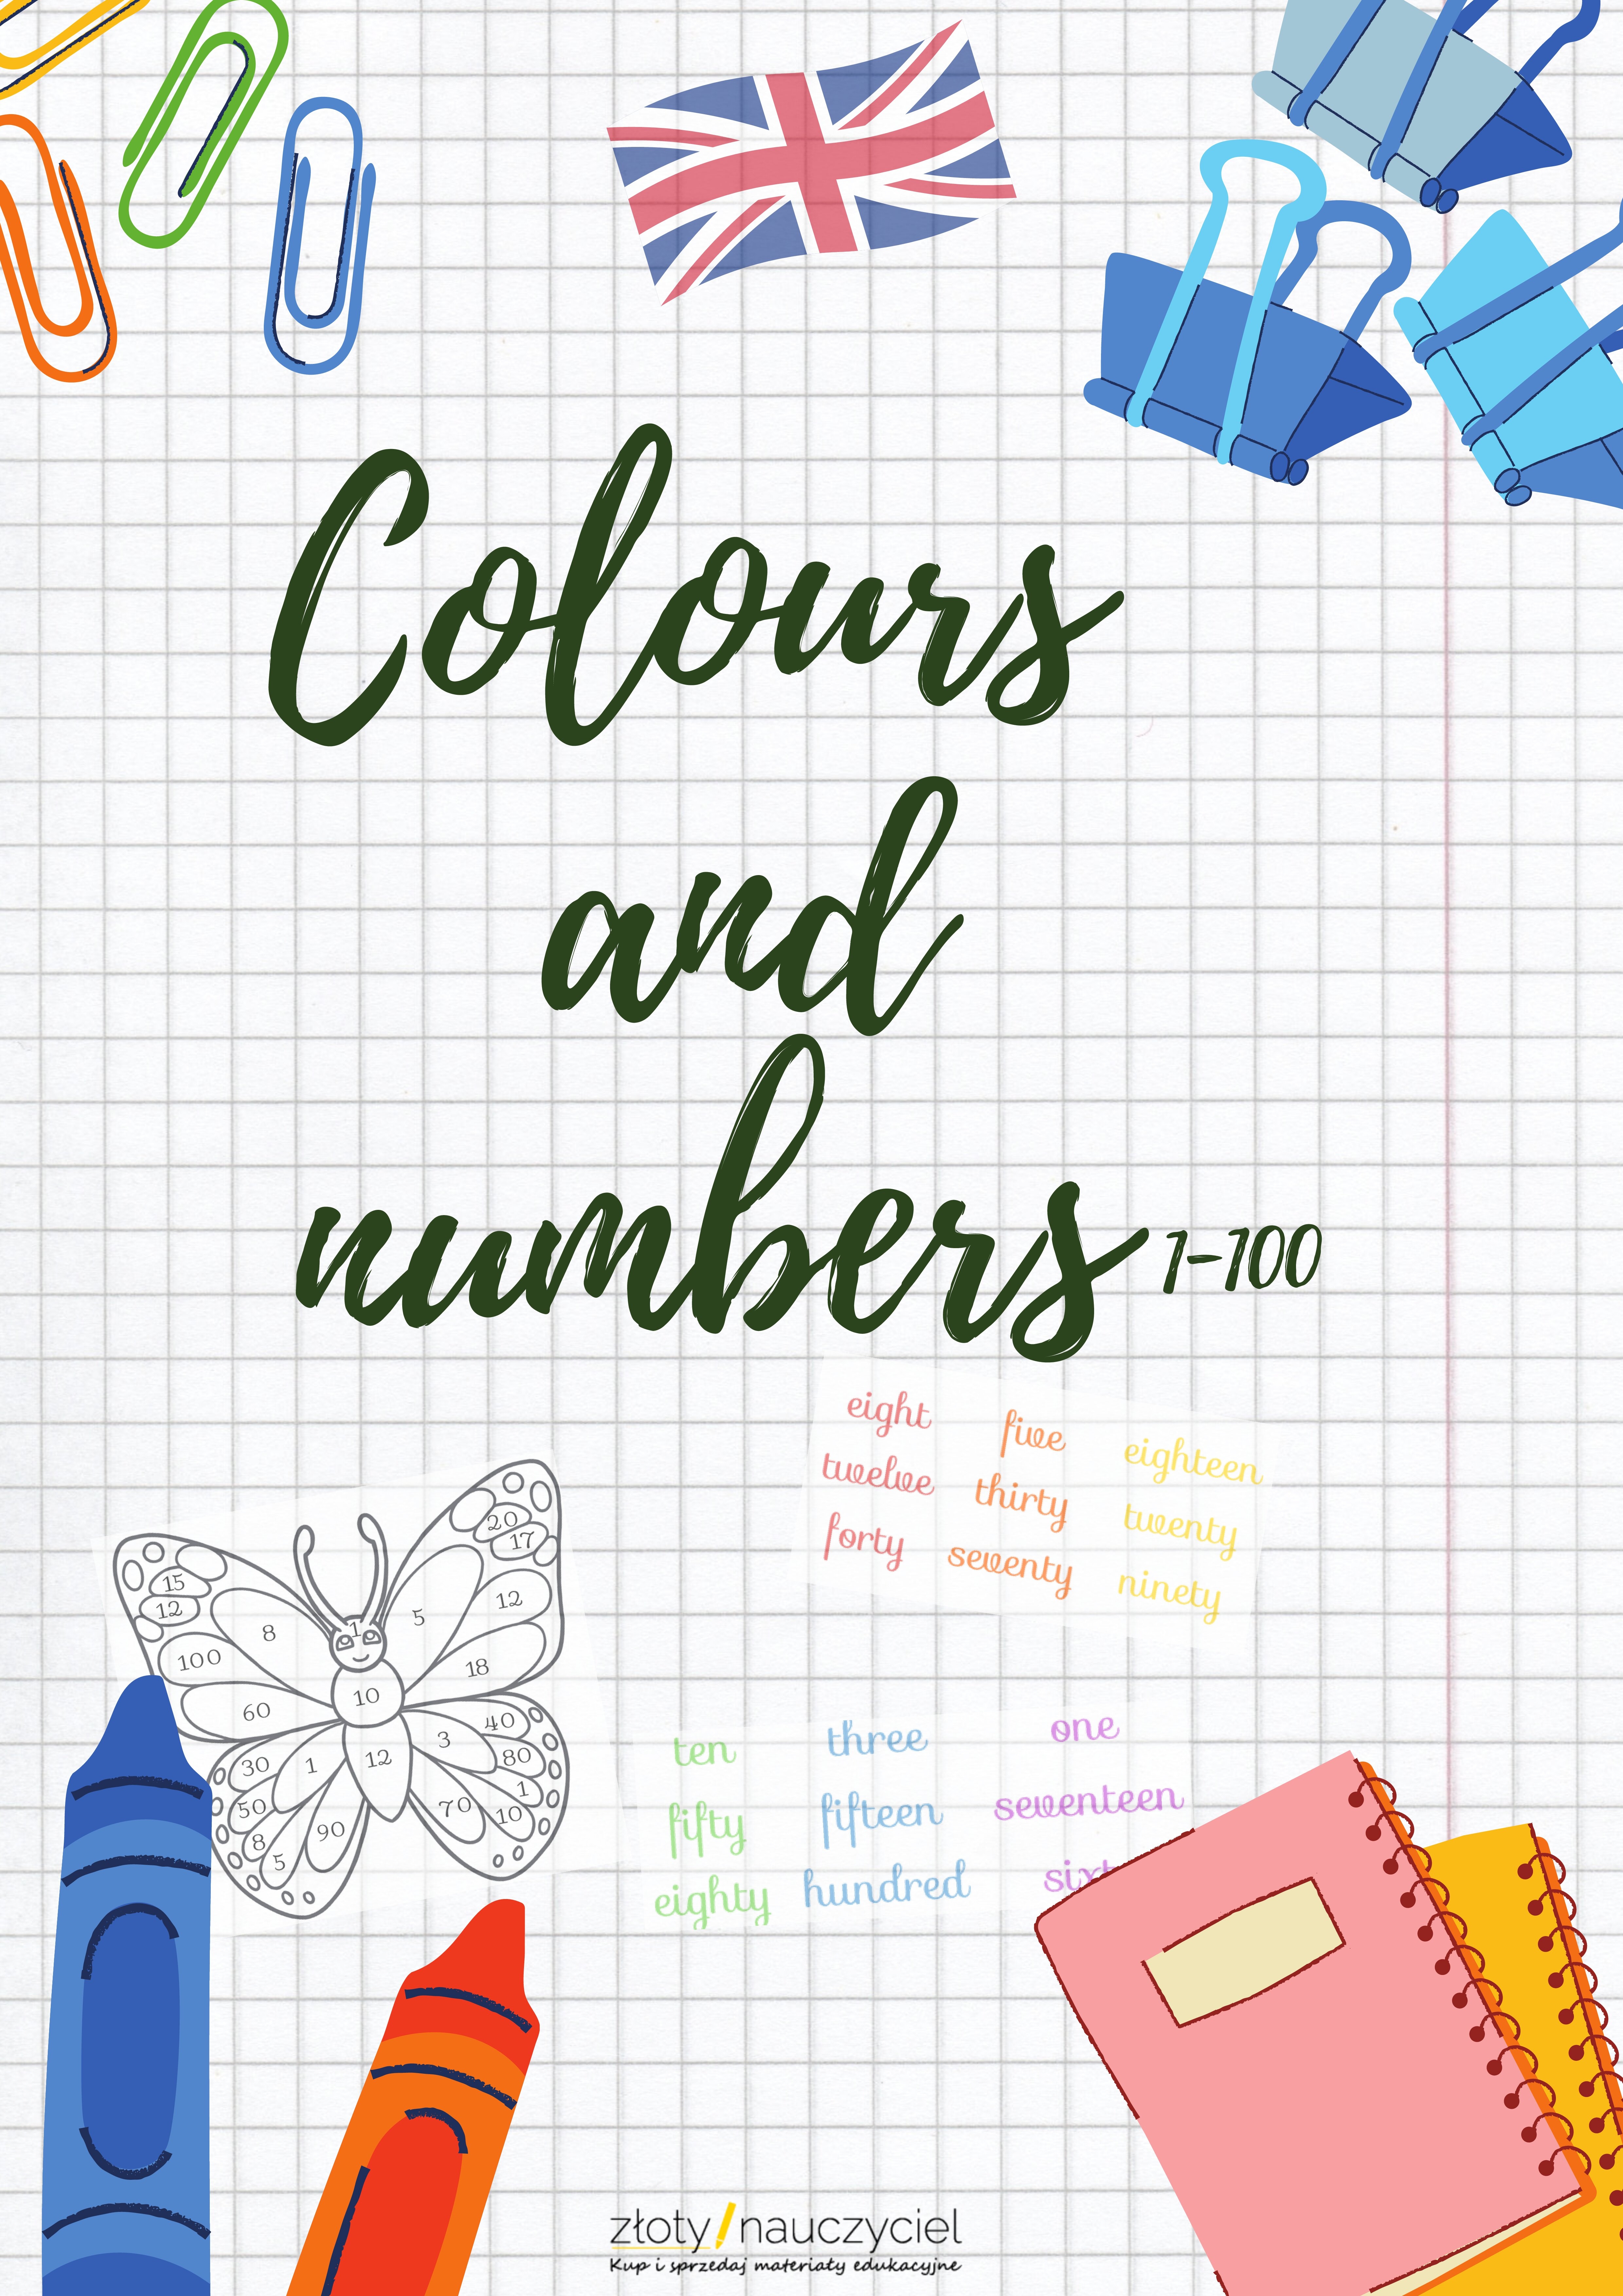 Colours
and
numbers 1-100
eight five eighteen
twelve thirty twenty
forty seventy ninety
20
17
15
12
12
8
1
5
100
18
60
10
40
30
1
12
3
80
1
50
70
10
8
90
5
ten three one
fifty fifteen seventeen
eighty hundred
złoty nauczyciel
Kup i sprzedaj materiały edukacyjne